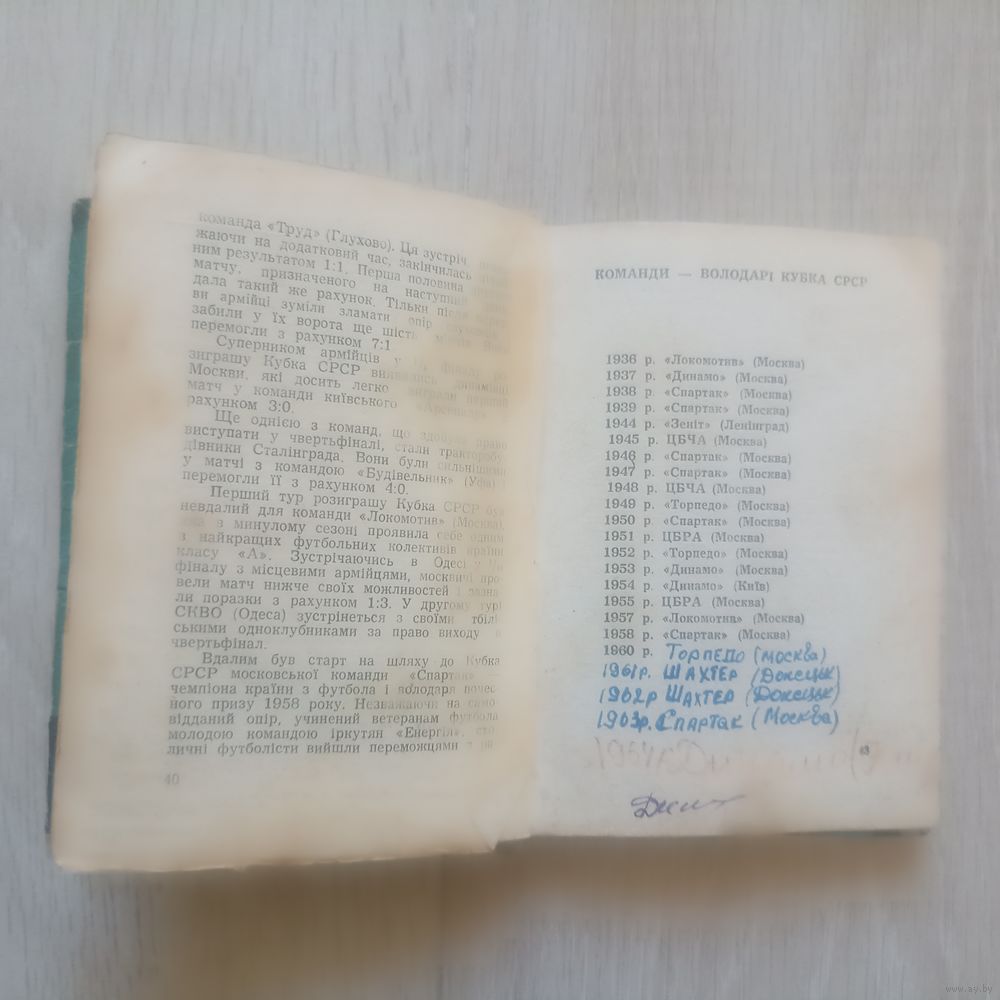 команда «Труд» (Глухово). Ця зустріч,
жаючи на додатковий час, закінчилась
ним результатом 1:1. Перша половина
матчу, призначеного на наступний
дала такий же рахунок. Тільки після
ви армійці зуміли зламати опір
забили у їх ворота ще шість
перемогли з рахунком 7:1
Суперником армійців у
зиграшу Кубка СРСР виявились динамівці
Москви, які досить легко виграли перший
матч у команди київського «Арсеналу»
рахунком 3:0.
Ще однією з команд, що здобула право
виступати у чвертьфіналі, стали тракторобу
дівники Сталінграда. Вони були сильнішими
у матчі з командою «Будівельник» (Уфа) і
перемогли її з рахунком 4:0.
Перший тур розиграшу Кубка СРСР був
невдалий для команди «Локомотив» (Москва),
яка з минулому сезоні проявила себе одним
з найкращих футбольних колективів країни
класу «А». Зустрічаючись в Одесі у
фіналу з місцевими армійцями, москвичі про
вели матч нижче своїх можливостей і зазна
ли поразки з рахунком 1:3. У другому турі
СКВО (Одеса) зустрінеться з своїми тбілі
ськими одноклубниками за право виходу в
чвертьфінал.
Вдалим був старт на шляху до Кубка
СРСР московської команди «Спартак» —
чемпіона країни з футбола і володаря почес
ного призу 1958 року. Незважаючи на само
відданий опір, учинений ветеранам футбола
молодою командою іркутян «Енергія», сто
личні футболісти вийшли переможцями з ра
40
КОМАНДИ — ВОЛОДАРІ КУБКА СРСР
1936 р. «Локомотив» (Москва)
1937 р. «Динамо» (Москва)
1938 р. «Спартак» (Москва)
1939 р. «Спартак» (Москва)
1944 р. «Зеніт» (Ленінград)
1945 р. ЦБЧА (Москва)
1946 р. «Спартак» (Москва)
1947 р. «Спартак» (Москва)
1948 р. ЦБЧА (Москва)
1949 р. «Торпедо» (Москва)
1950 р. «Спартак» (Москва)
1951 р. ЦБРА (Москва)
1952 р. «Торпедо» (Москва)
1953 р. «Динамо» (Москва)
1954 р. «Динамо» (Київ)
1955 р. ЦБРА (Москва)
1957 р. «Локомотив» (Москва)
1958 р. «Спартак» (Москва)
1960 р. Торпедо (Москва)
1961р. Шахтер (Донецьк)
1962р Шахтер (Донецьк)
1963р. Спартак (Москва)
63
www.ay.by